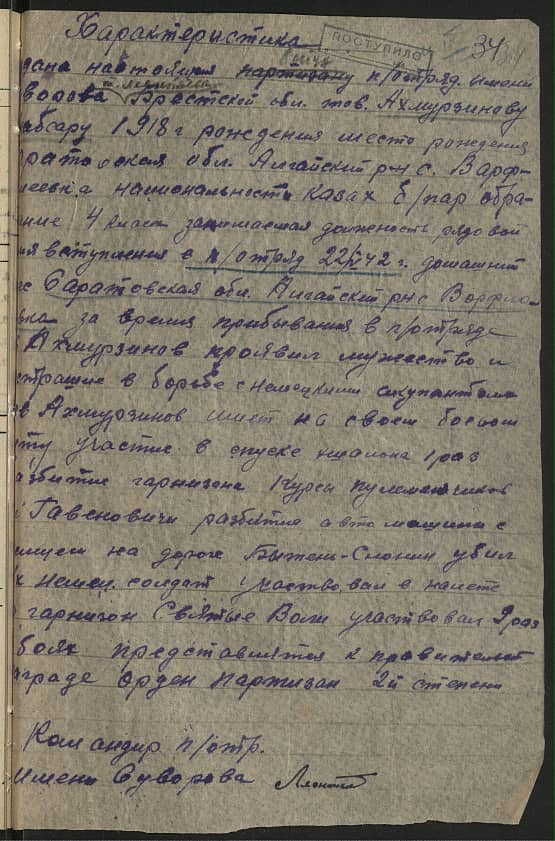 Характеристика
ПОСТУПИЛО
34
дана настоящая партизану п/отряд. имени
ворова Брестской обл. тов. Ахмурзинову
абсару 1918 г рождения место рождения
рато вская обл. Алгайский р-н с. Варф-
меевка национальность казах б/пар обра-
ние 4 класса занимаемая должность рядовой
мя вступления в п/отряд 22/V 42 г. домашний
с Саратовская обл. Алгайский р-н с Ворфло-
вка за время прибывания в п/отряде
Ахмурзинов проявил мужество и
страшие в борьбе с немецкими окупантами
в Ахмурзинов имеет на своем боевом
ту участие в спуске эшалона 1 раз
азбитие гарнизона Курсы пулеметчиков
Гавеновичи разбитие автомашины с
на дороге Бытень-Слоним убил
х немец. солдат участвовал в налете
гарнизон Святые Воли участвовал 9 раз
боях представляется к правительст
аграде орден партизан 2й степени
Командир п/отр.
имени Суворова